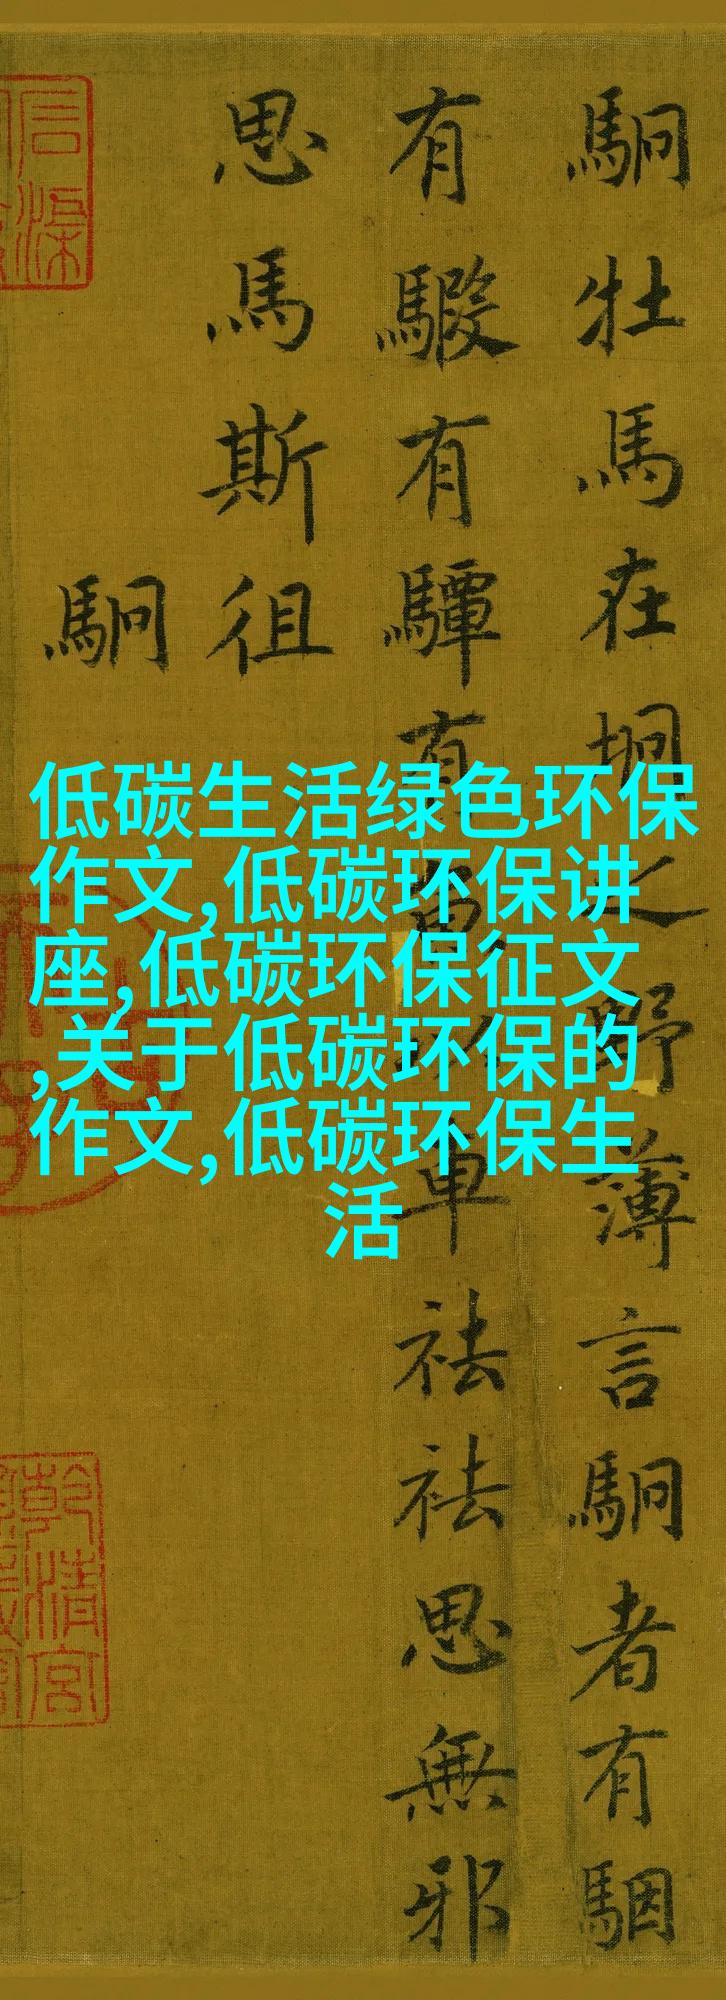 駉牡馬在坰之野薄言駉者有駰
有騢有驔有魚以車祛祛思無邪
思馬斯徂
駉
低碳生活绿色环保
作文,低碳环保讲
座,低碳环保征文
,关于低碳环保的
作文,低碳环保生
活
乾清宮